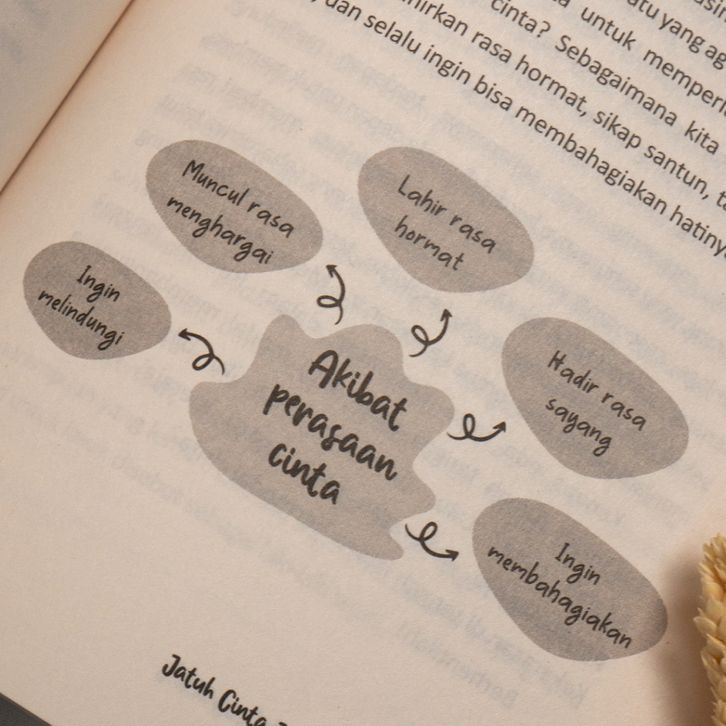 untuk
cinta? Sebagaimana kita
rasa hormat, sikap santun,
dan selalu ingin bisa membahagiakan
Muncul rasa
menghargai
Lahir rasa
hormat
Ingin
melindungi
Akibat
perasaan
cinta
Hadir rasa
sayang
Ingin
membahagiakan
Jatuh Cinta